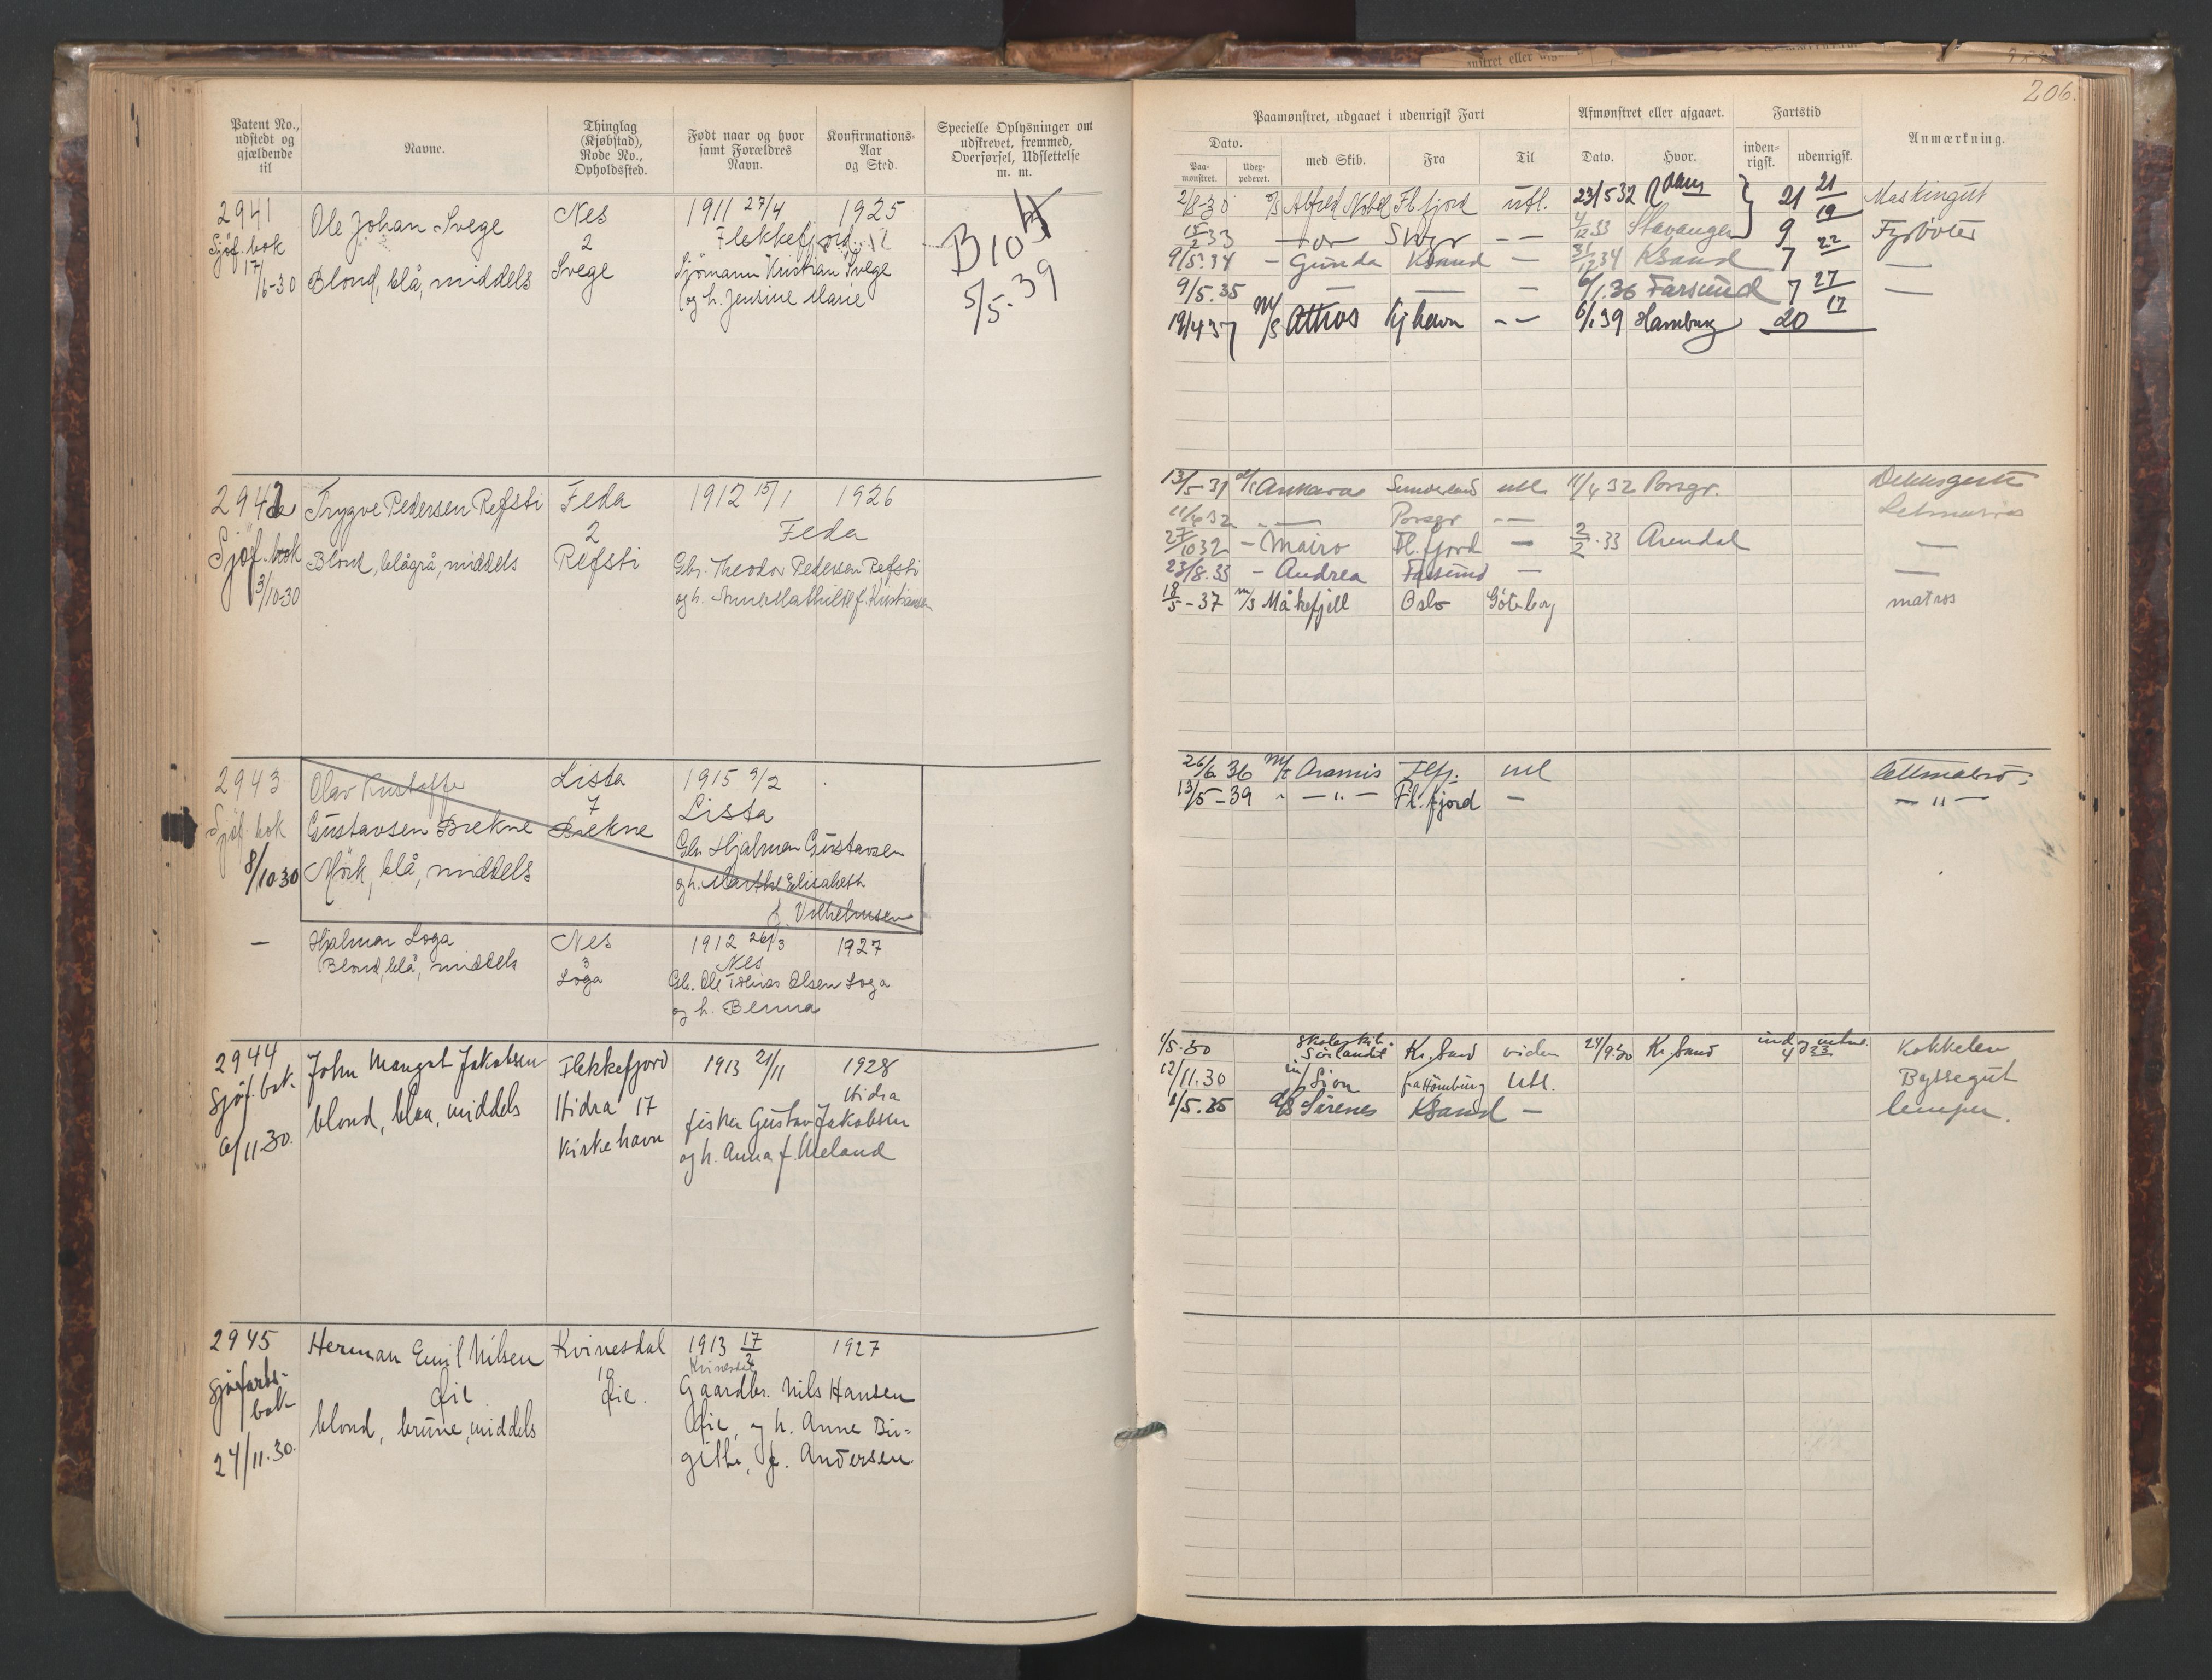 206.
Patent No., udstedt og gjældende til
Navne.
Thinglag (Kjøbstad), Rode No., Opholdssted.
Født naar og hvor samt Forældres Navn.
Konfirmations-Aar og Sted.
Specielle Oplysninger om udskrevet, fremmed, Overførsel, Udslettelse m. m.
Paamønstret, udgaaet i udenrigsk Fart
Afmønstret eller afgaaet.
Fartstid
Anmærkning.
Dato.
Paa-mønstret.
Udex-pederet.
med Skib.
Fra
Til
Dato.
Hvor.
inden-rigsk.
udenrigsk.
2941
Sjøf. bok
17/6-30
Ole Johan Svege
Blond, blå, middels
Nes
2
Svege
1911 27/4
1925
Flekkefjord
Sjömann Kristian Svege
og h. Jensine Marie
B 10
5/5-39
2/8-30 Alfred Nobel Fl.fjord utl. 23/5 32 R.dam 21 21 Maskingut
15/2 33 — — 4/12 33 Stavanger 9 19 Fyrböter
9/5.34 — Gunda KSand — 31/12 34 KSand 7 22 —
9/5.35 — — — 6/1.36 Farsund 7 27 —
19/4 37 M/S Athos Kjhavn — 6/1 39 Hamburg 20 17
2942
Sjöf. bok
3/10-30
Trygve Pedersen Refsti
Blond, blågrå, middels
Feda
2
Refsti
1912 15/1
1926
Feda
Gbr. Theodor Pedersen Refsti
og h. Anna Mathilde f. Kristiansen
13/5-31 Ankara Sunderland utl. 11/4 32 Porsgr. Dekksgutt
11/4 32 — Porsgr — Letmatros
27/10 32 — Mairo Fl.fjord — 2/2.33 Arendal —
23/8.33 — Andrea Farsund — —
18/5-37 m/s Måkefjell Oslo Göteborg matros
2943
Sjöf. bok
8/10 30
Olav Kristoffer
Gustavsen Brekne
Mörk, blå, middels
Lista
7
Brekne
1915 9/2
Lista
Gbr Hjalmar Gustavsen
og h. Marthe Elisabeth
f. Vilhelmsen
26/6 36 M/t Aramis Flfj. utl Lettmatros
13/5-39 — " — Fl.fjord — — " —
—
Hjalmar Loga
Blond, blå, middels
Nes
3
Loga
1912 26/3
1927
Nes
Gbr. Ole Tobias Olsen Loga
og h. Benna
2944
Sjöf. bok.
6/11.30.
John Mangot Jakobsen
blond, blaa, middels
Flekkefjord
Hidra 17
Kirkehavn
1913 21/11
1928
Hidra
fisker Gustav Jakobsen
og h. Anna f. Meland
1/5.30 Skoleskib. Sörlandet Kr.Sand viden 24/9.30 Kr.Sand 4 23 Kokkelev
12/11.30 m/ Sion fra Hamburg Utl. Byssegut
1/5.35 d/s Sirenes KSand — lemper.
2945
Sjöfarts-
bok
24/11.30.
Herman Emil Nilsen
Øie
blond, brune, middels
Kvinesdal
19
Øie.
1913 17/2
1927
Kvinesdal
Gaardbr. Nils Hansen
Øie, og h. Anne Bir-
githe, f. Andersen